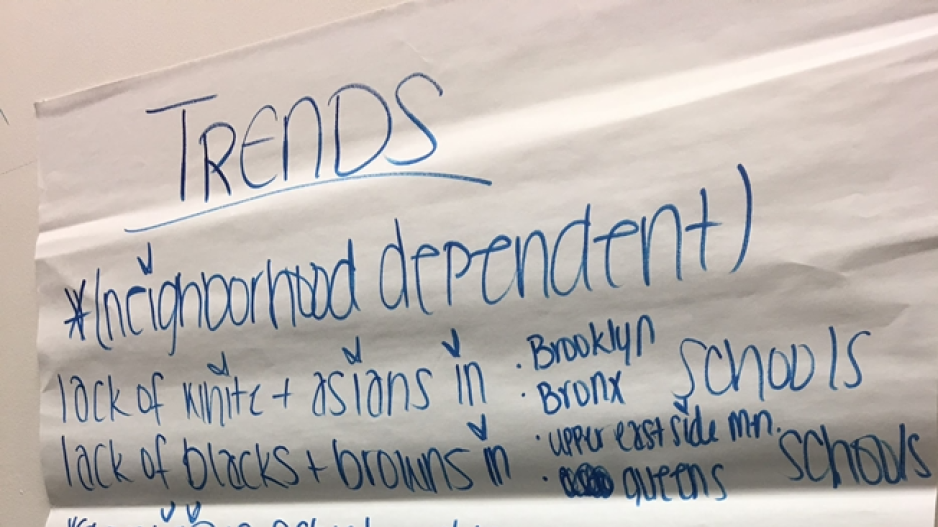 TRENDS
*(neighborhood dependent)
lack of white + asians in · Brooklyn · Bronx schools
lack of blacks + browns in · upper east side mn. · queens schools